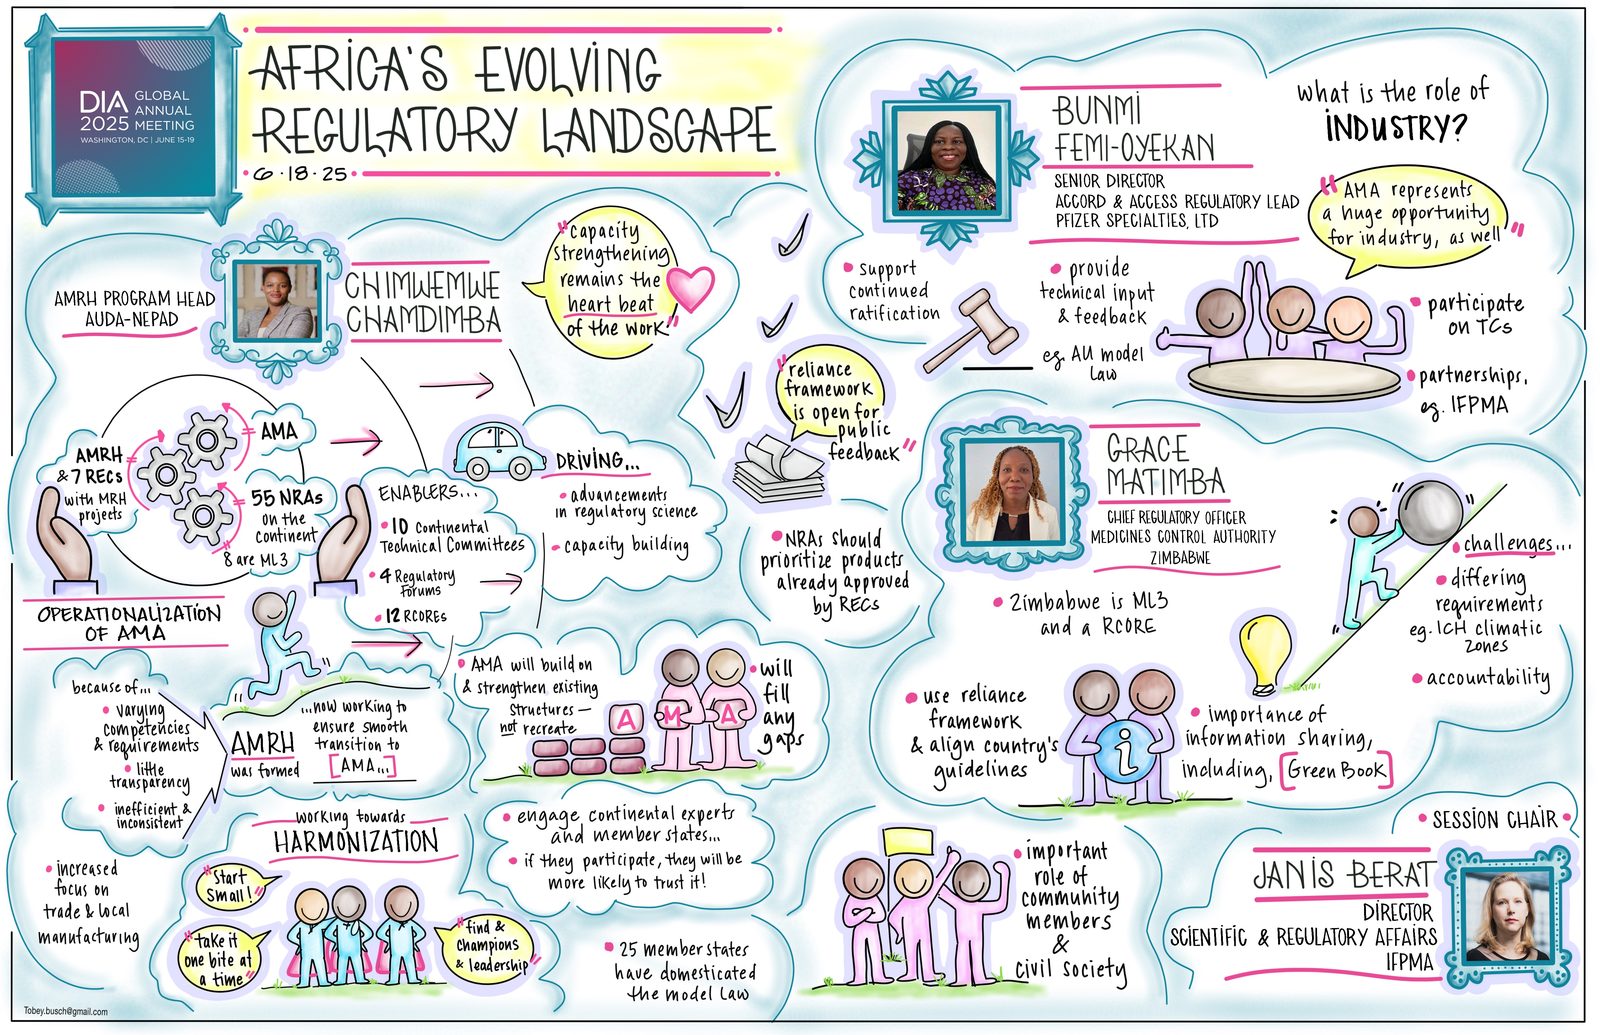 DIA
2025
GLOBAL
ANNUAL
MEETING
WASHINGTON, DC | JUNE 15-19
AFRICA'S EVOLVING
REGULATORY LANDSCAPE
6·18·25
AMRH PROGRAM HEAD
AUDA-NEPAD
CHIMWEMWE
CHAMDIMBA
"capacity
strengthening
remains the
heart beat
of the work."
AMRH
& 7 RECs
with MRH
projects
= AMA
= 55 NRAs
on the
continent
8 are ML3
ENABLERS...
• 10 Continental
Technical Committees
• 4 Regulatory
forums
• 12 RCOREs
DRIVING...
• advancements
in regulatory science
• capacity building
OPERATIONALIZATION
OF AMA
because of...
• varying
competencies
& requirements
• little
transparency
• inefficient &
inconsistent
AMRH
was formed
...now working to
ensure smooth
transition to
[AMA...]
• increased
focus on
trade & local
manufacturing
working towards
HARMONIZATION
"Start
small!"
"take it
one bite at
a time"
"find &
champions
& leadership"
• AMA will build on
& strengthen existing
structures —
not recreate
A M A
• will
fill
any
gaps
• engage continental experts
and member states...
• if they participate, they will be
more likely to trust it!
• 25 member states
have domesticated
the model law
"reliance
framework
is open for
public
feedback"
• NRAs should
prioritize products
already approved
by RECs
BUNMI
FEMI-OYEKAN
SENIOR DIRECTOR
ACCORD & ACCESS REGULATORY LEAD
PFIZER SPECIALTIES, LTD
what is the role of
INDUSTRY?
"AMA represents
a huge opportunity
for industry, as well"
• support
continued
ratification
• provide
technical input
& feedback
eg. AU model
law
• participate
on TCs
• partnerships,
eg. IFPMA
GRACE
MATIMBA
CHIEF REGULATORY OFFICER
MEDICINES CONTROL AUTHORITY
ZIMBABWE
• Zimbabwe is ML3
and a RCORE
• use reliance
framework
& align country's
guidelines
i
• importance of
information sharing,
including, [Green Book]
• challenges...
• differing
requirements
eg. ICH climatic
zones
• accountability
• important
role of
community
members
&
civil society
• SESSION CHAIR •
JANIS BERAT
DIRECTOR
SCIENTIFIC & REGULATORY AFFAIRS
IFPMA
Tobey.busch@gmail.com